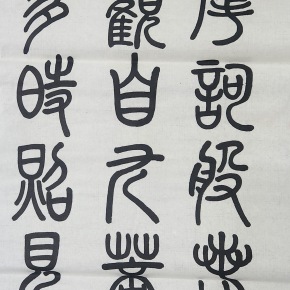 摩訶般若
觀自在菩
多時照見